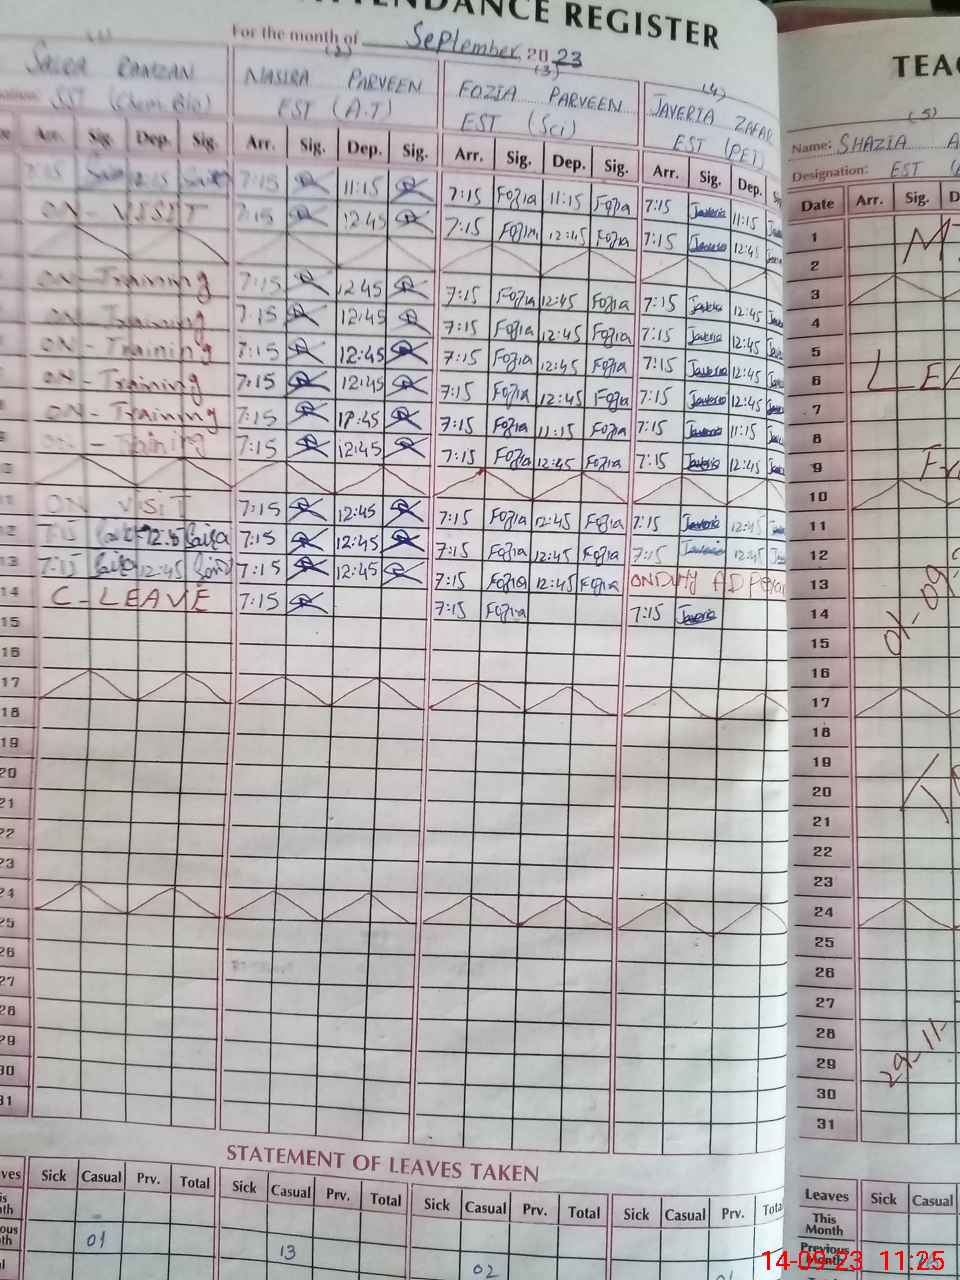 ATTENDANCE REGISTER
For the month of September, 2023
(2) (3) (4)
SAIRA RAMZAN NASIRA PARVEEN FOZIA PARVEEN JAVERIA ZAFAR
SST (Chem. Bio) EST (A.T) EST (Sci) EST (PET)
Arr. Sig. Dep. Sig. Arr. Sig. Dep. Sig. Arr. Sig. Dep. Sig. Arr. Sig. Dep.
7:15 7:15 11:15 7:15 Fozia 11:15 Fozia 7:15 Javeria 11:15
ON - VISIT 7:15 12:45 7:15 Fozia 12:45 Fozia 7:15 Javeria 12:45
ON - Training 7:15 12:45 7:15 Fozia 12:45 Fozia 7:15 Javeria 12:45
ON - Training 7:15 12:45 7:15 Fozia 12:45 Fozia 7:15 Javeria 12:45
ON - Training 7:15 12:45 7:15 Fozia 12:45 Fozia 7:15 Javeria 12:45
ON - Training 7:15 12:45 7:15 Fozia 12:45 Fozia 7:15 Javeria 12:45
ON - Training 7:15 12:45 7:15 Fozia 11:15 Fozia 7:15 Javeria 11:15
ON - Training 7:15 12:45 7:15 Fozia 12:45 Fozia 7:15 Javeria 12:45
ON VISIT 7:15 12:45 7:15 Fozia 12:45 Fozia 7:15 Javeria 12:45
12 7:15 Saira 12:45 Saira 7:15 12:45 7:15 Fozia 12:45 Fozia 7:15 Javeria 12:45
13 7:15 Saira 12:45 7:15 12:45 7:15 Fozia 12:45 Fozia ON Duty AD
14 C - LEAVE 7:15 7:15 Fozia 7:15 Javeria
15
16
17
18
19
20
21
22
23
24
25
26
27
28
29
30
31
STATEMENT OF LEAVES TAKEN
Sick Casual Prv. Total Sick Casual Prv. Total Sick Casual Prv. Total Sick Casual Prv.
01 13 02
(5)
Name: SHAZIA
Designation: EST
Date Arr. Sig.
1
2
3
4
5
6
7
8
9
10
11
12
13
14
15
16
17
18
19
20
21
22
23
24
25
26
27
28
29
30
31
01-09
29-11-
Leaves Sick Casual
This Month
Previous Month
14-09-23 11:25